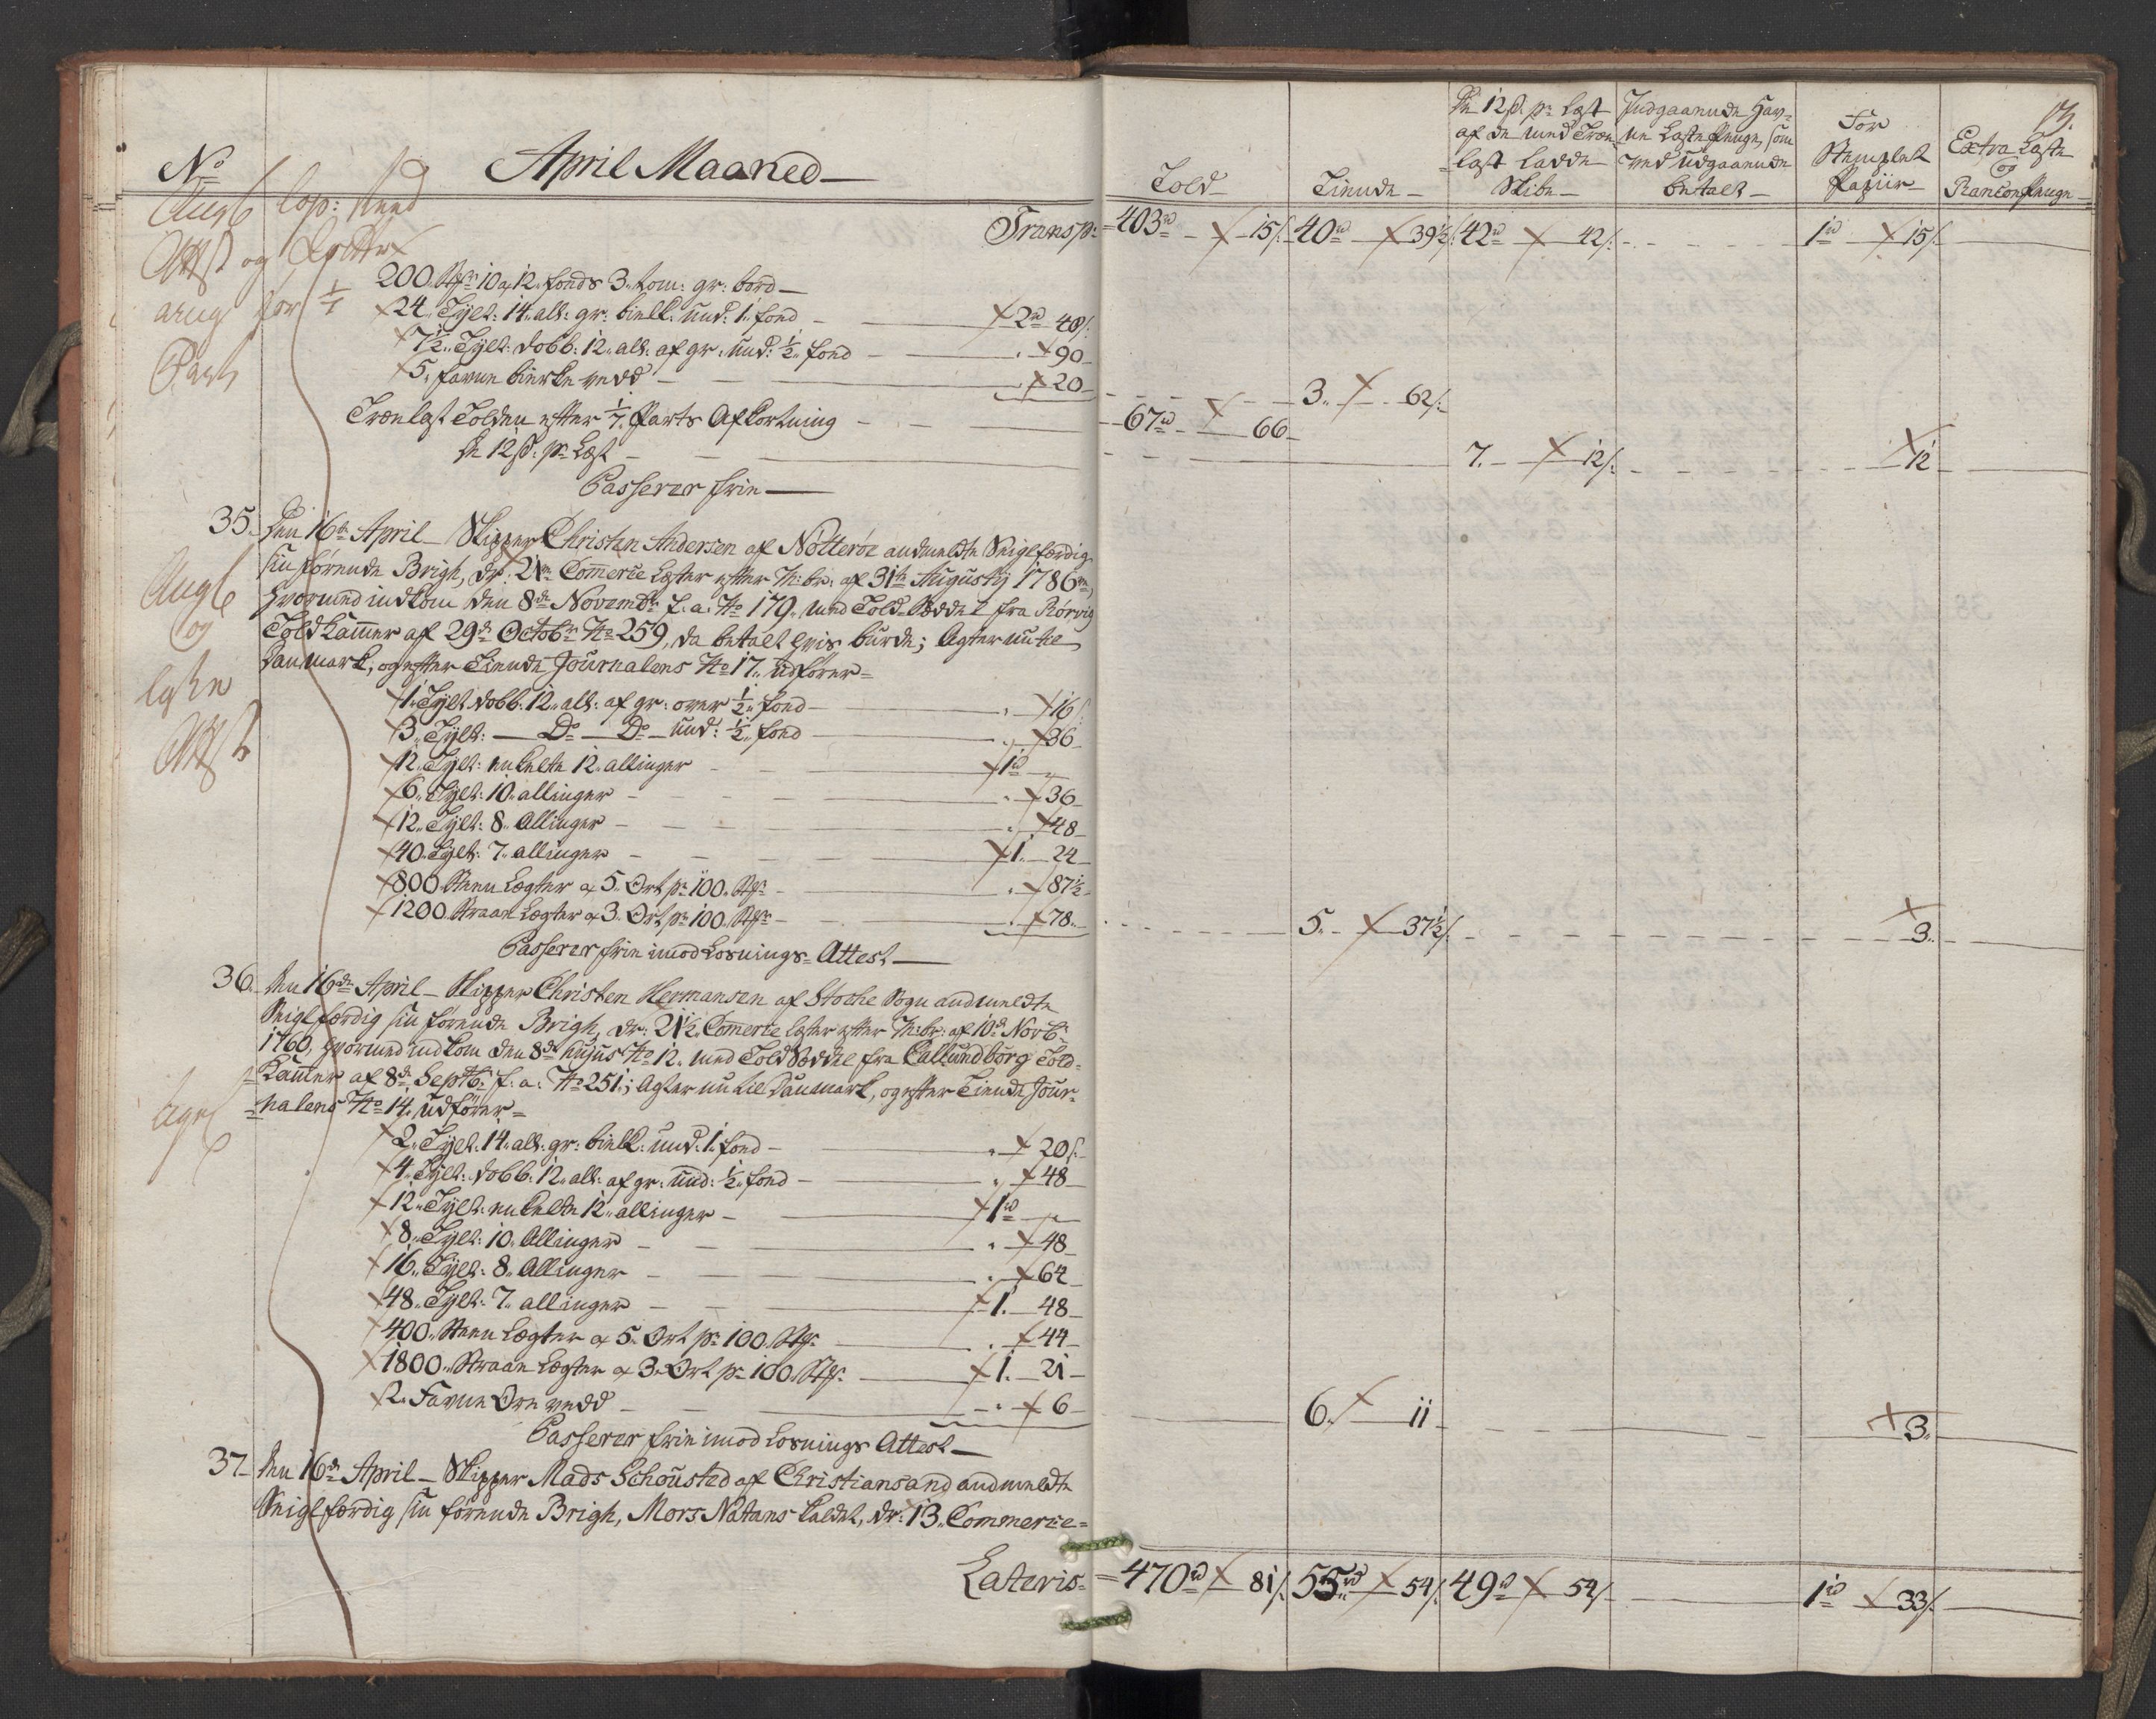 No
April Maaned
Told
Tiende
De 12 s. pr. Læst af de med Træe- last ladde Skibe
Indgaaende Hav- ne Læstepenge, som ved udgaaende betalt
For Stemplet Papiir
Extra Læste og Ranconpenge
Transp: 403 rd 15 s. 40 rd 39½ s. 42 rd 42 s. 1 rd 15 s.
200 Stk: 10 a 12 foeds 3 tom: gr: bord
24 Tylt: 14 all: gr: bielk: und: 1 foed 2 rd 40 s.
7½ Tylt: dobb: 12 all: af gr: und: ½ foed 90
5 favne birke vedd 20 3 62 s.
Trælast Tolden efter 1/7 Parts Afkortning 67 rd 66
De 12 s: pr Læst 7 12 s. 12
Passerer frie
35. Den 16de April Skipper Christen Andersen af Nötteröe anmeldte Seiglfærdig
sin förende Brigh, dr: 21 Commerce Læster efter M:br: af 31te Augustij 1786
hvormed indkom den 8de Novembr f. a. No 179 med Told-Seddel fra Rörvig
Told Kammer af 29de Octobr No 259, da betalt hvis burde; Agter nu til
Danmark, og efter Tiende Journalens No 17 udförer
1 Tylt dobb: 12 all: af gr: over ½ foed 16 s.
3 Tylt: Do Do und: ½ foed 36
12 Tylt: enkelte 12 allinger 1 rd
6 Tylt: 10 allinger 36
12 Tylt: 8 Allinger 48
40 Tylt: 7 allinger 1. 24
800 Steen Lægter a 5 Ort pr 100 Stk 87½
1200 Straae Lægter a 3 Ort pr 100 Stk 78 5. 37½ s. 3
Passerer frie imod Losnings-Attest
36. Den 16de April Skipper Christen Hermansen af Stokke Sogn anmeldte
Seiglfærdig sin förende Brigh, dr: 21½ Commerce læster efter M:br: af 10de Novb:
1760, hvormed indkom den 8de hujus No 12 med Told Seddel fra Callundborg Told-
Kammer af 8de Septb: f: a: No 251; Agter nu til Danmark, og efter Tiende Jour-
nalens No 14 udförer
2 Tylt: 14 all: gr: bielk: und: 1 foed 20 s.
4 Tylt: dobb: 12 all: af gr: und: ½ foed 48
12 Tylt: enkelte 12 allinger 1 rd
8 Tylt: 10 Allinger 48
16 Tylt: 8 Allinger 64
48 Tylt: 7 allinger 1. 48
400 Steen Lægter a 5 Ort pr 100 Stk 44
1800 Straae Lægter a 3 Ort pr 100 Stk 1. 21
2 Favne Ore vedd 6 6. 11 3
Passerer frie imod Losnings Attest
37. Den 16de April Skipper Mads Schousted af Christiansand anmeldte
Seiglfærdig sin förende Brigh, Mors Natans kaldet, dr: 13 Commerce-
Lateris 470 rd 81 s. 55 rd 54 s. 49 rd 54 s. 1 rd 33 s.